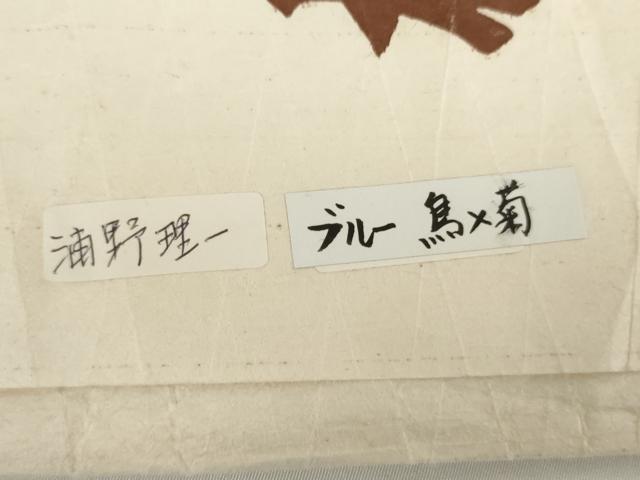 浦野理一
ブルー 鳥×菊